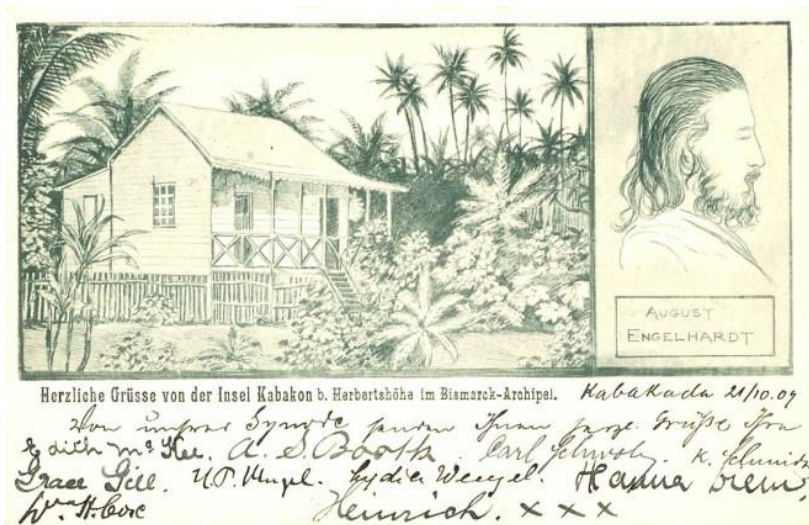 AUGUST
ENGELHARDT
Herzliche Grüsse von der Insel Kabakon b. Herbertshöhe im Bismarck-Archipel.
Kabakada 21/10.09
Von unsrer Synode senden Ihnen herzl. Grüße Ihre
Edith McKee. A. S. Booth. Carl K. Schmidt
Grace Gill. Lydia Wenzel. Hanna
Wm H. Cox Heinrich. x x x